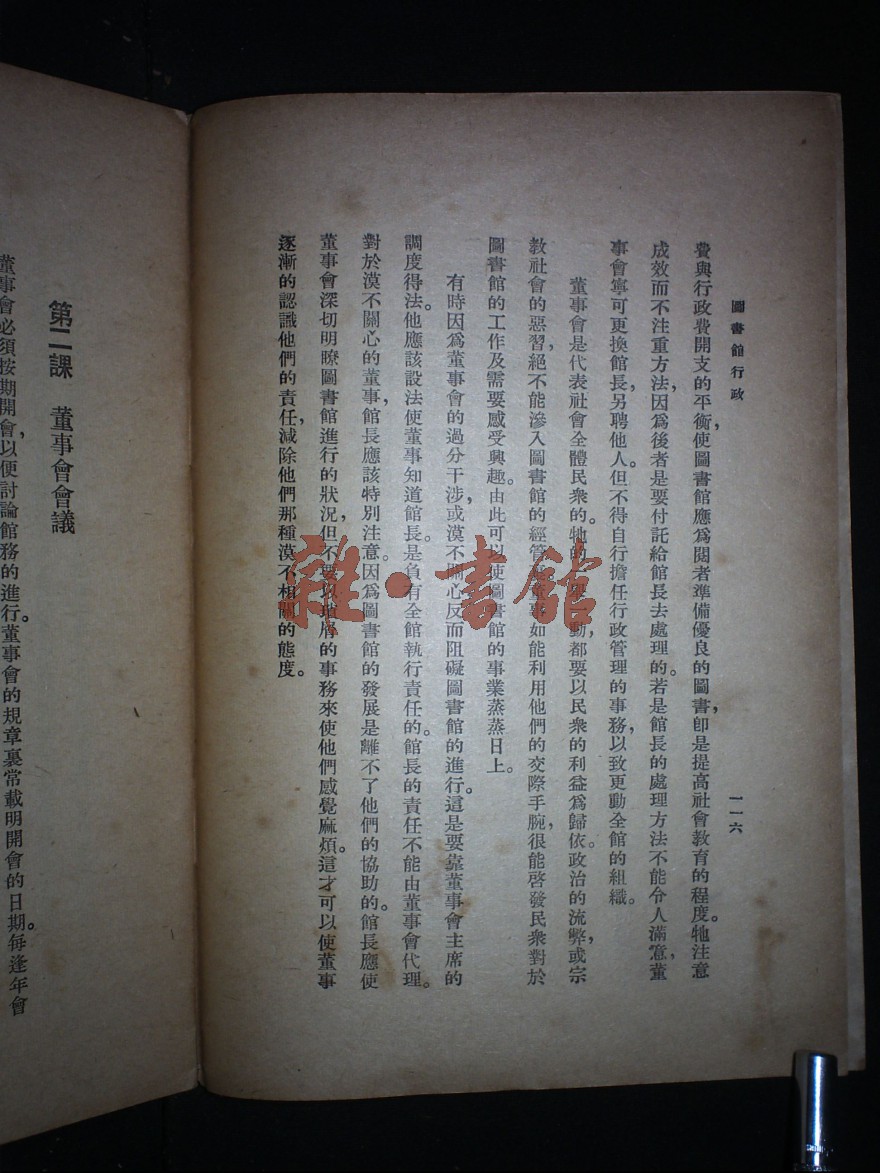 圖書館行政
一一六
費與行政費開支的平衡,使圖書館應爲閱者準備優良的圖書,卽是提高社會敎育的程度。牠注意
成效而不注重方法,因爲後者是要付託給館長去處理的。若是館長的處理方法不能令人滿意,董
事會寧可更換館長,另聘他人。但不得自行擔任行政管理的事務,以致更動全館的組織。
董事會是代表社會全體民衆的。牠的一舉一動,都要以民衆的利益爲歸依。政治的流弊,或宗
敎社會的惡習,絕不能滲入圖書館的經管。董事如能利用他們的交際手腕,很能啓發民衆對於
圖書館的工作及需要感受興趣。由此可以使圖書館的事業蒸蒸日上。
有時因爲董事會的過分干涉,或漠不關心反而阻礙圖書館的進行。這是要靠董事會主席的
調度得法。他應該設法使董事知道館長。是負有全館執行責任的。館長的責任不能由董事會代理。
對於漠不關心的董事,館長應該特別注意。因爲圖書館的發展是離不了他們的協助的。館長應使
董事會深切明瞭圖書館進行的狀況,但不要以瑣屑的事務來使他們感覺麻煩。這才可以使董事
逐漸的認識他們的責任,減除他們那種漠不相關的態度。
第二課 董事會會議
董事會必須按期開會,以便討論館務的進行。董事會的規章裏常載明開會的日期。每逢年會
雜·書館